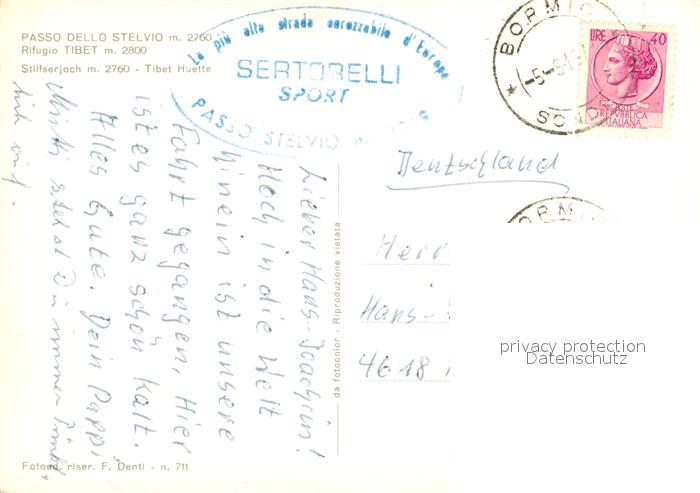 PASSO DELLO STELVIO m. 2760
Rifugio TIBET m. 2800
Stilfserjoch m. 2760 - Tibet Huette
La più alta strada carozzabile d'Europa
SERTORELLI
SPORT
PASSO STELVIO
BORMIO
-5-
SON
LIRE 40
POSTE
REPVBBLICA
ITALIANA
ORMI
Deutschland
Herr
Hans-
4618
privacy protection
Datenschutz
Lieber Hans-Joachim!
Hoch in die Welt
hinein ist unsere
Fahrt gegangen, Hier
ist es ganz schön kalt.
Alles Gute. Dein Pappi
da fotocolor - Riproduzione vietata
Fotoed. riser. F. Denti - n. 711